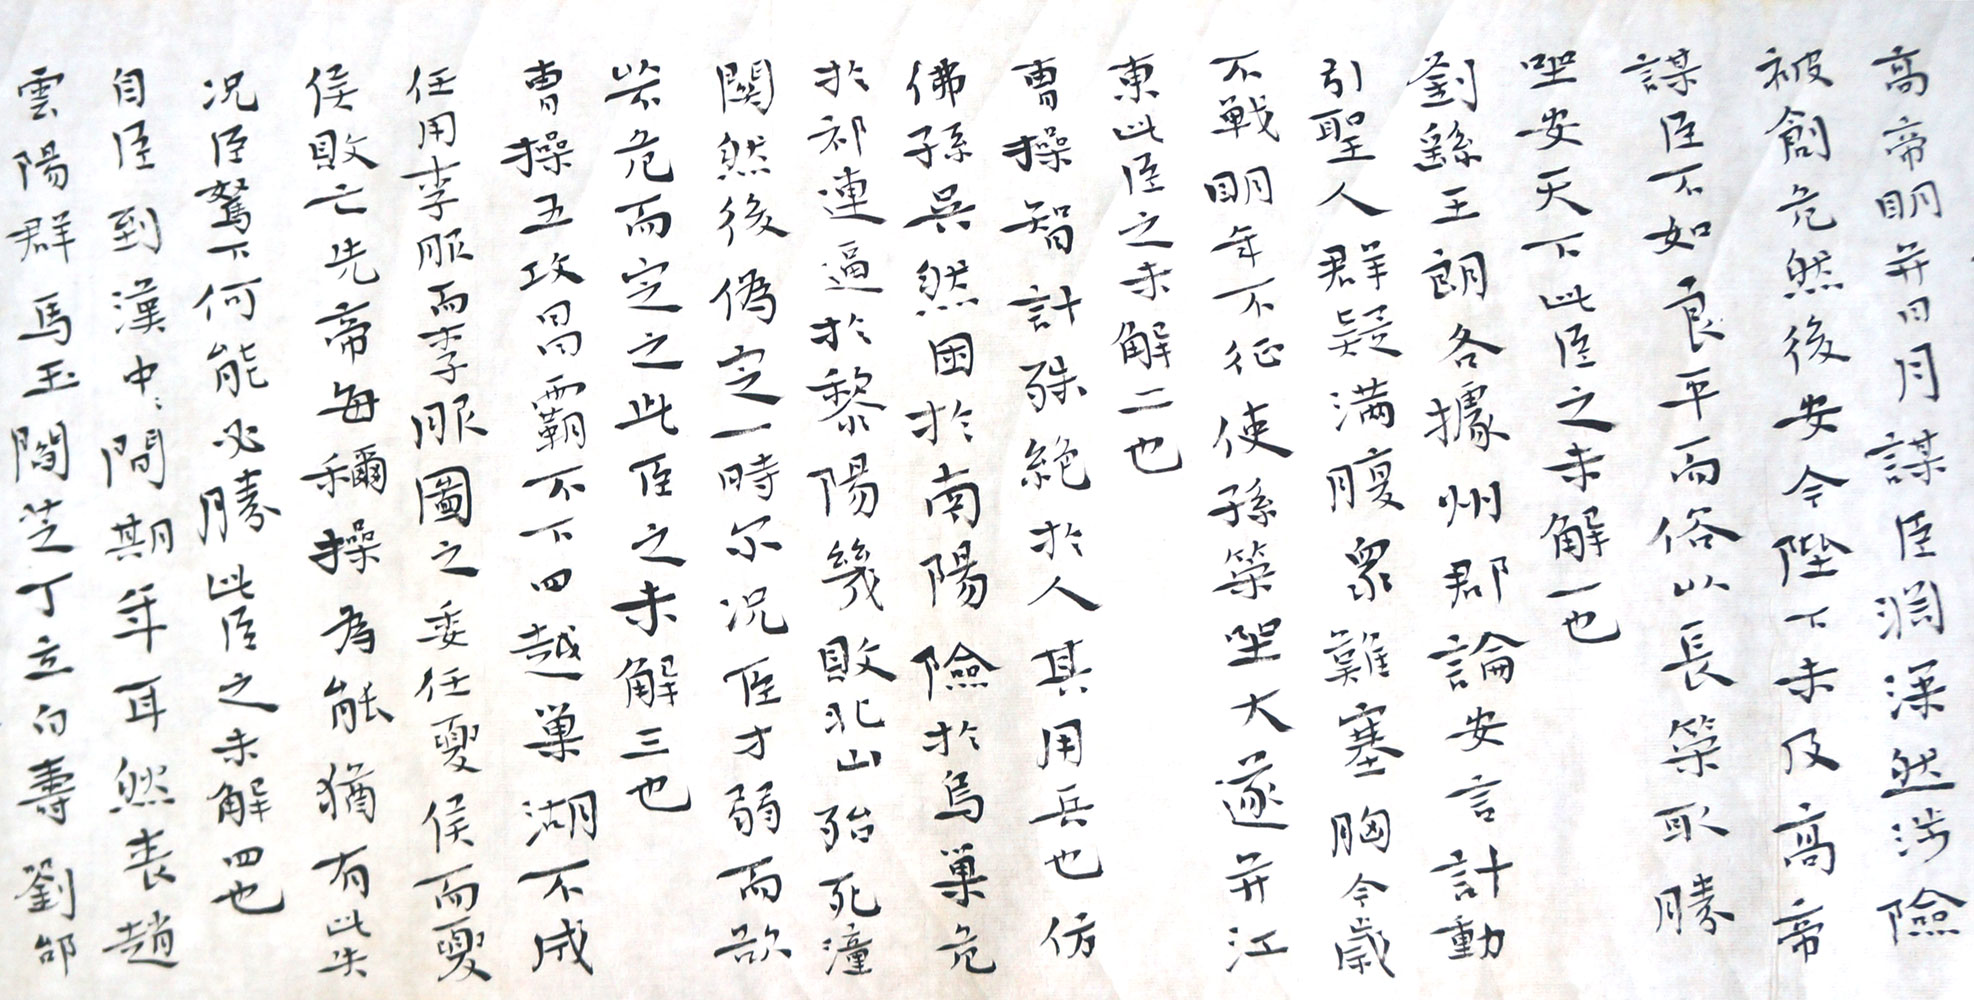 高帝明并日月謀臣淵深然涉險
被創危然後安今陛下未及高帝
謀臣不如良平而俗以長策取勝
坐安天下此臣之未解一也
劉繇王朗各據州郡論安言計動
引聖人群疑满腹眾難塞胸今歲
不戰明年不征使孫策坐大遂并江
東此臣之未解二也
曹操智計殊絕於人其用兵也仿
佛孫吳然困於南陽險於烏巢危
於祁連逼於黎陽幾敗北山殆死潼
關然後偽定一時尔况臣才弱而欲
以不危而定之此臣之未解三也
曹操五攻昌霸不下四越巢湖不成
任用李服而李服圖之委任夏侯而夏
侯敗亡先帝每稱操為能猶有此失
况臣駑下何能必勝此臣之未解四也
自臣到漢中中間期年耳然喪趙
雲陽群馬玉閻芝丁立白壽劉郃